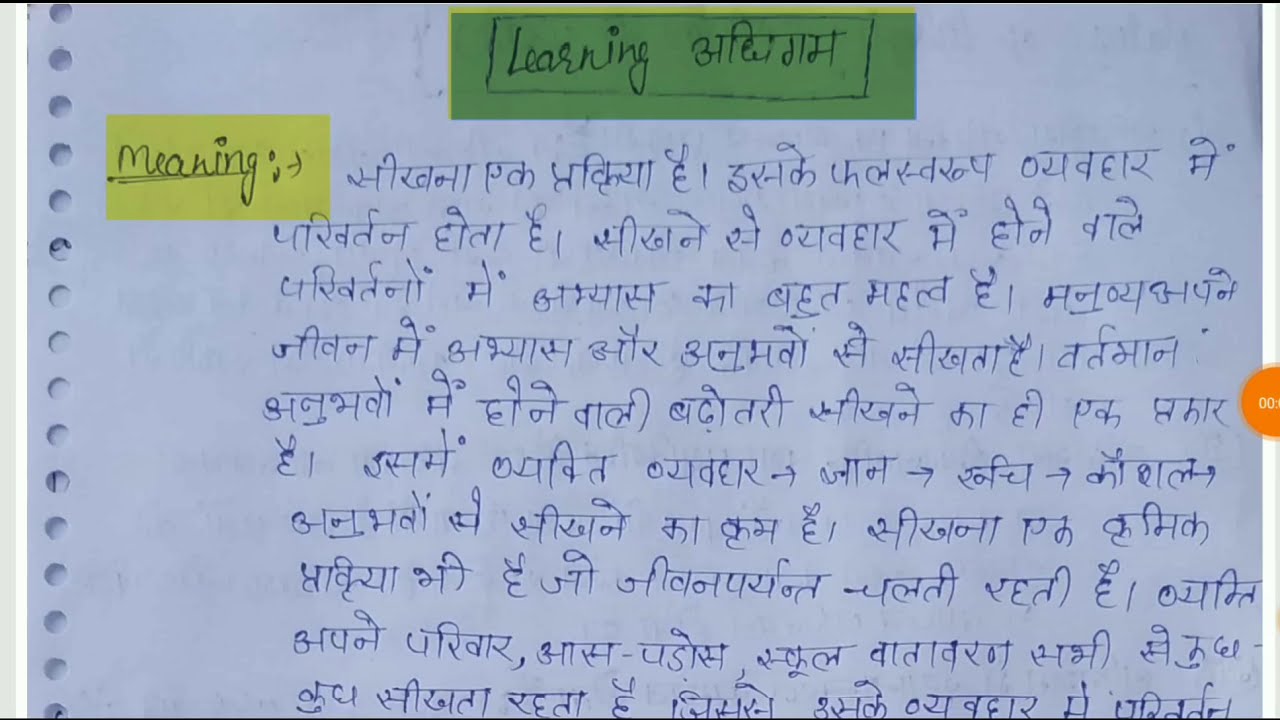 Learning अधिगम
Meaning:→ सीखना एक प्रक्रिया है। इसके फलस्वरूप व्यवहार में
परिवर्तन होता है। सीखने से व्यवहार में होने वाले
परिवर्तनों में अभ्यास का बहुत महत्व है। मनुष्य अपने
जीवन में अभ्यास और अनुभवों से सीखता है। वर्तमान
अनुभवों में होने वाली बढ़ोतरी सीखने का ही एक प्रकार
है। इसमें व्यक्ति व्यवहार → ज्ञान → रूचि → कौशल →
अनुभवों से सीखने का क्रम है। सीखना एक क्रमिक
प्रक्रिया भी है जो जीवनपर्यन्त चलती रहती है। व्यक्ति
अपने परिवार, आस-पडोस, स्कूल वातावरण सभी से कुछ-
कुछ सीखता रहता है जिससे उसके व्यवहार में परिवर्तन
00:0